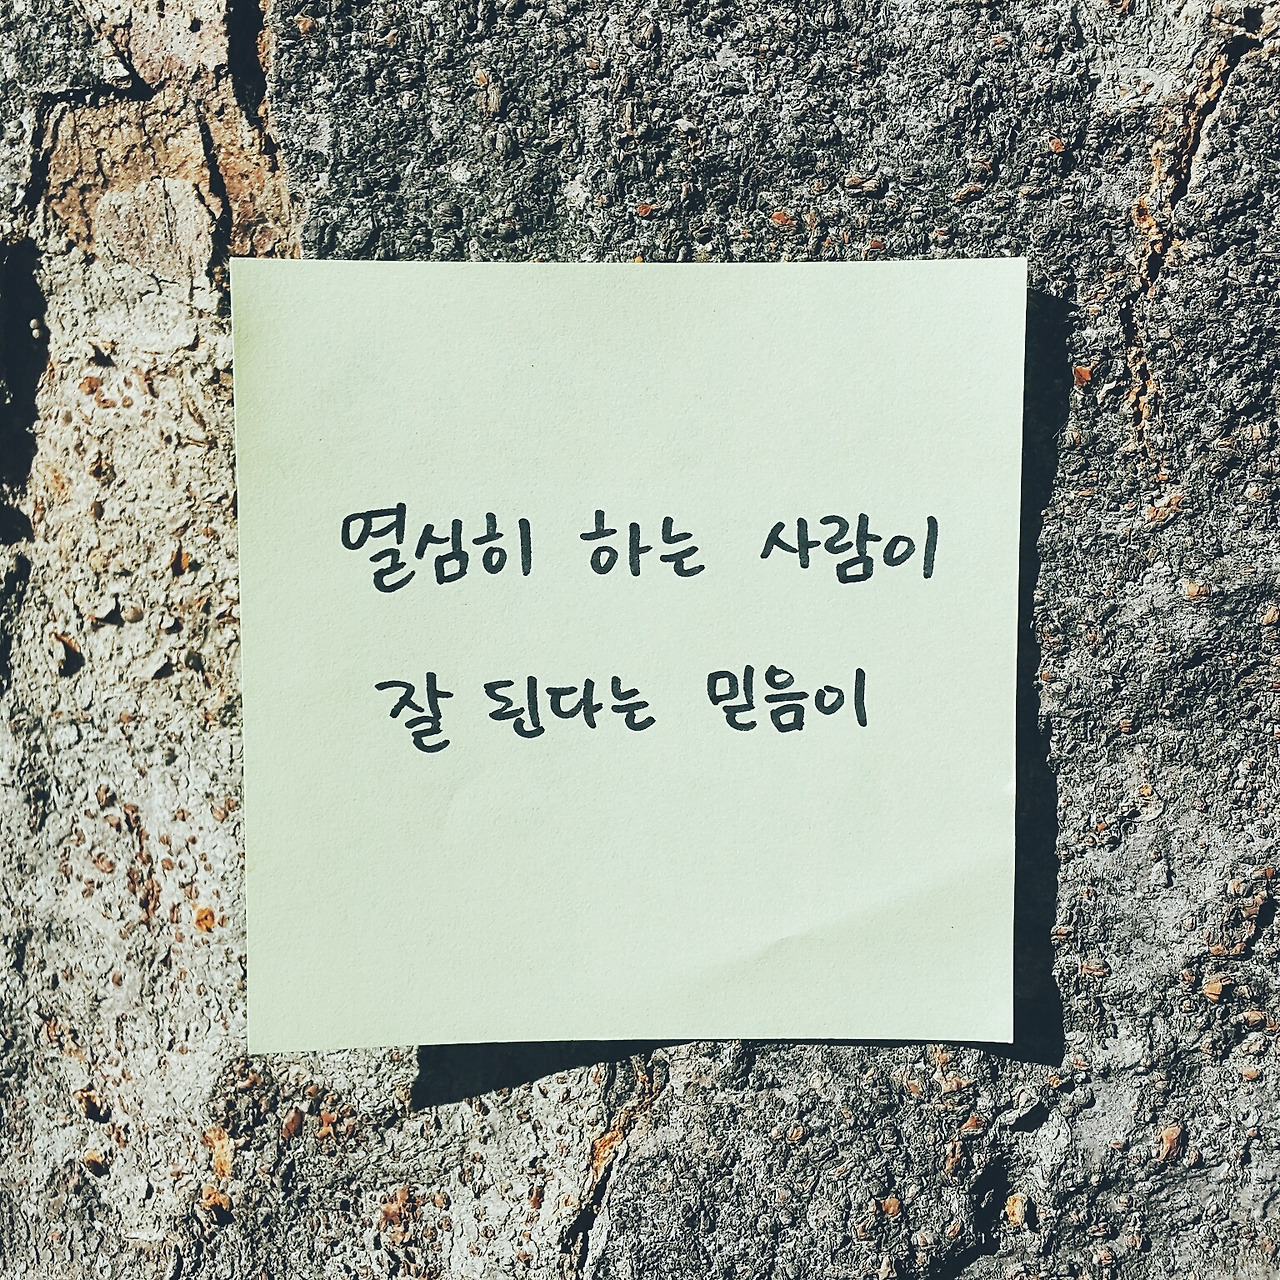 열심히 하는 사람이
잘 된다는 믿음이